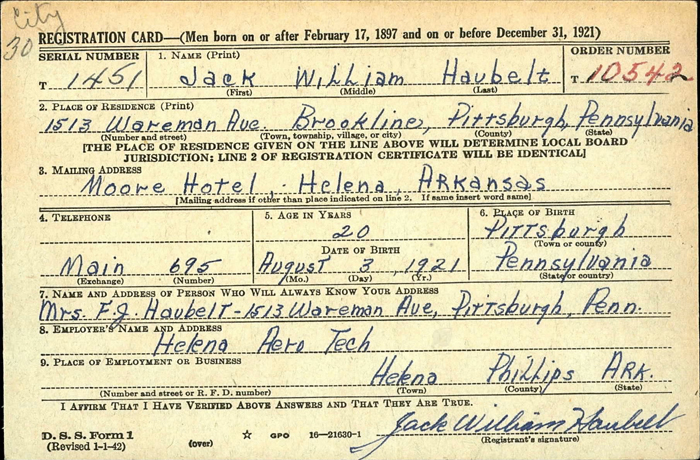 City
30
REGISTRATION CARD—(Men born on or after February 17, 1897 and on or before December 31, 1921)
SERIAL NUMBER
T 1451
1. NAME (Print)
Jack William Haubelt
(First) (Middle) (Last)
ORDER NUMBER
T 10542
2. PLACE OF RESIDENCE (Print)
1513 Wareman Ave. Brookline, Pittsburgh, Pennsylvania
(Number and street) (Town, township, village, or city) (County) (State)
[THE PLACE OF RESIDENCE GIVEN ON THE LINE ABOVE WILL DETERMINE LOCAL BOARD
JURISDICTION; LINE 2 OF REGISTRATION CERTIFICATE WILL BE IDENTICAL]
3. MAILING ADDRESS
Moore Hotel, Helena, Arkansas
[Mailing address if other than place indicated on line 2. If same insert word same]
4. TELEPHONE
Main 695
(Exchange) (Number)
5. AGE IN YEARS
20
DATE OF BIRTH
August 3, 1921
(Mo.) (Day) (Yr.)
6. PLACE OF BIRTH
Pittsburgh
(Town or county)
Pennsylvania
(State or country)
7. NAME AND ADDRESS OF PERSON WHO WILL ALWAYS KNOW YOUR ADDRESS
Mrs. F.J. Haubelt - 1513 Wareman Ave, Pittsburgh, Penn.
8. EMPLOYER'S NAME AND ADDRESS
Helena Aero Tech
9. PLACE OF EMPLOYMENT OR BUSINESS
Helena Phillips Ark.
(Number and street or R. F. D. number) (Town) (County) (State)
I AFFIRM THAT I HAVE VERIFIED ABOVE ANSWERS AND THAT THEY ARE TRUE.
Jack William Haubelt
D. S. S. Form 1
(Revised 1-1-42) (over) ☆ GPO 16—21630-1 (Registrant's signature)